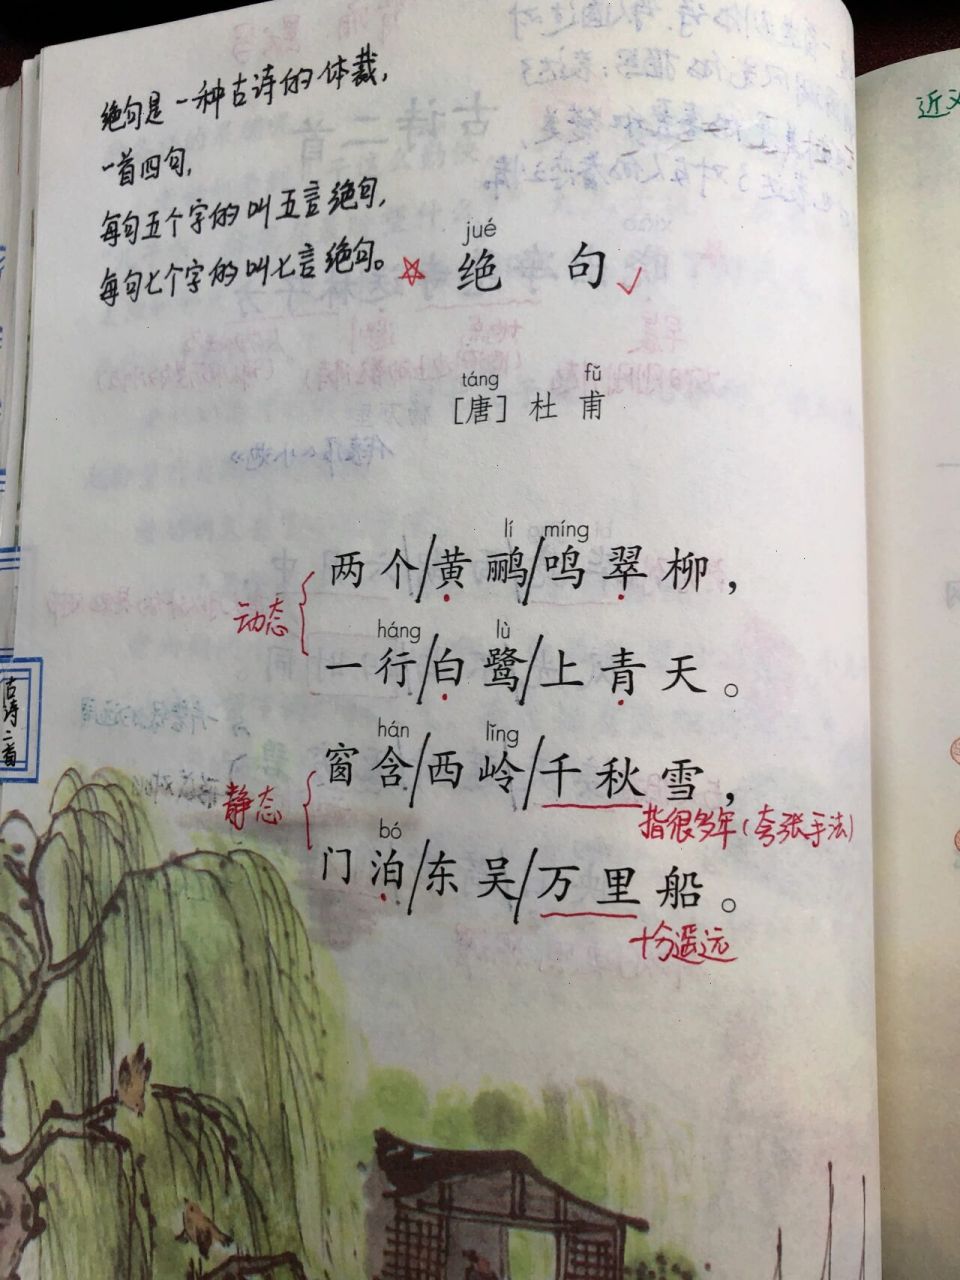 绝句是一种古诗的体裁,
一首四句,
每句五个字的叫五言绝句,
每句七个字的叫七言绝句。
jué
绝句
táng fǔ
[唐]杜甫
lí míng
两个/黄鹂/鸣翠柳，
动态
háng lù
一行/白鹭/上青天。
hán lǐng
窗含/西岭/千秋雪，
静态
指很多年(夸张手法)
bó
门泊/东吴/万里船。
十分遥远
古诗二首
近义